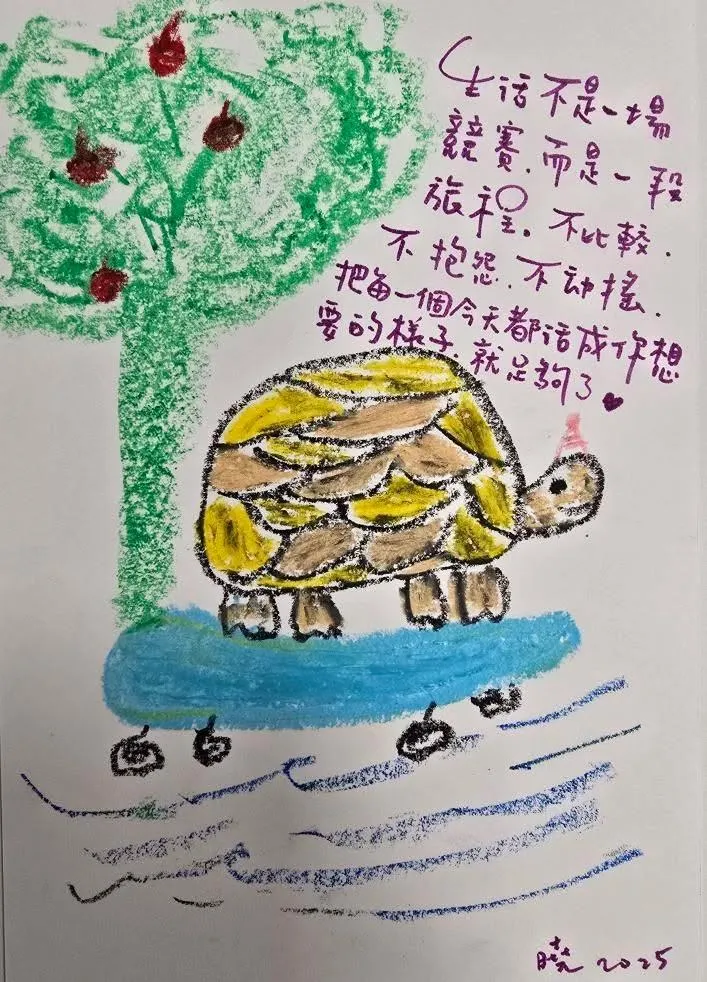 生活不是一場
競賽.而是一段
旅程。不比較.
不抱怨.不动搖.
把每一個今天都活成你想
要的樣子.就足夠了♥
晓 2025